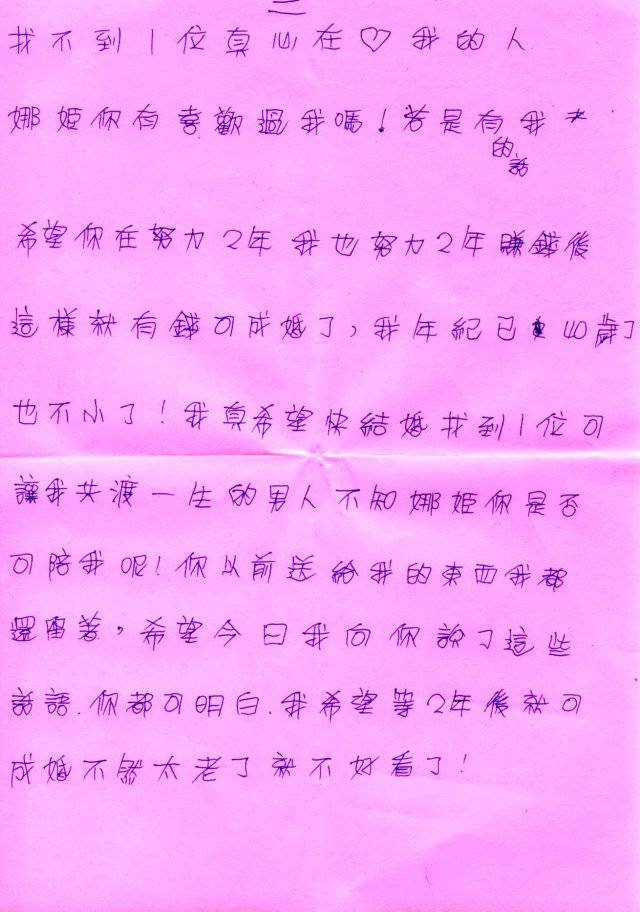 二
找不到1位真心在♡我的人
娜姫你有喜歡過我嗎!若是有我
的話
希望你在努力2年我也努力2年賺錢後
這樣就有錢可成婚了,我年紀已40歲了
也不小了!我真希望快結婚找到1位可
讓我共渡一生的男人不知娜姫你是否
可陪我呢!你以前送給我的東西我都
還留著,希望今日我向你說了這些
話語.你都可明白.我希望等2年後就可
成婚不然太老了就不好看了!